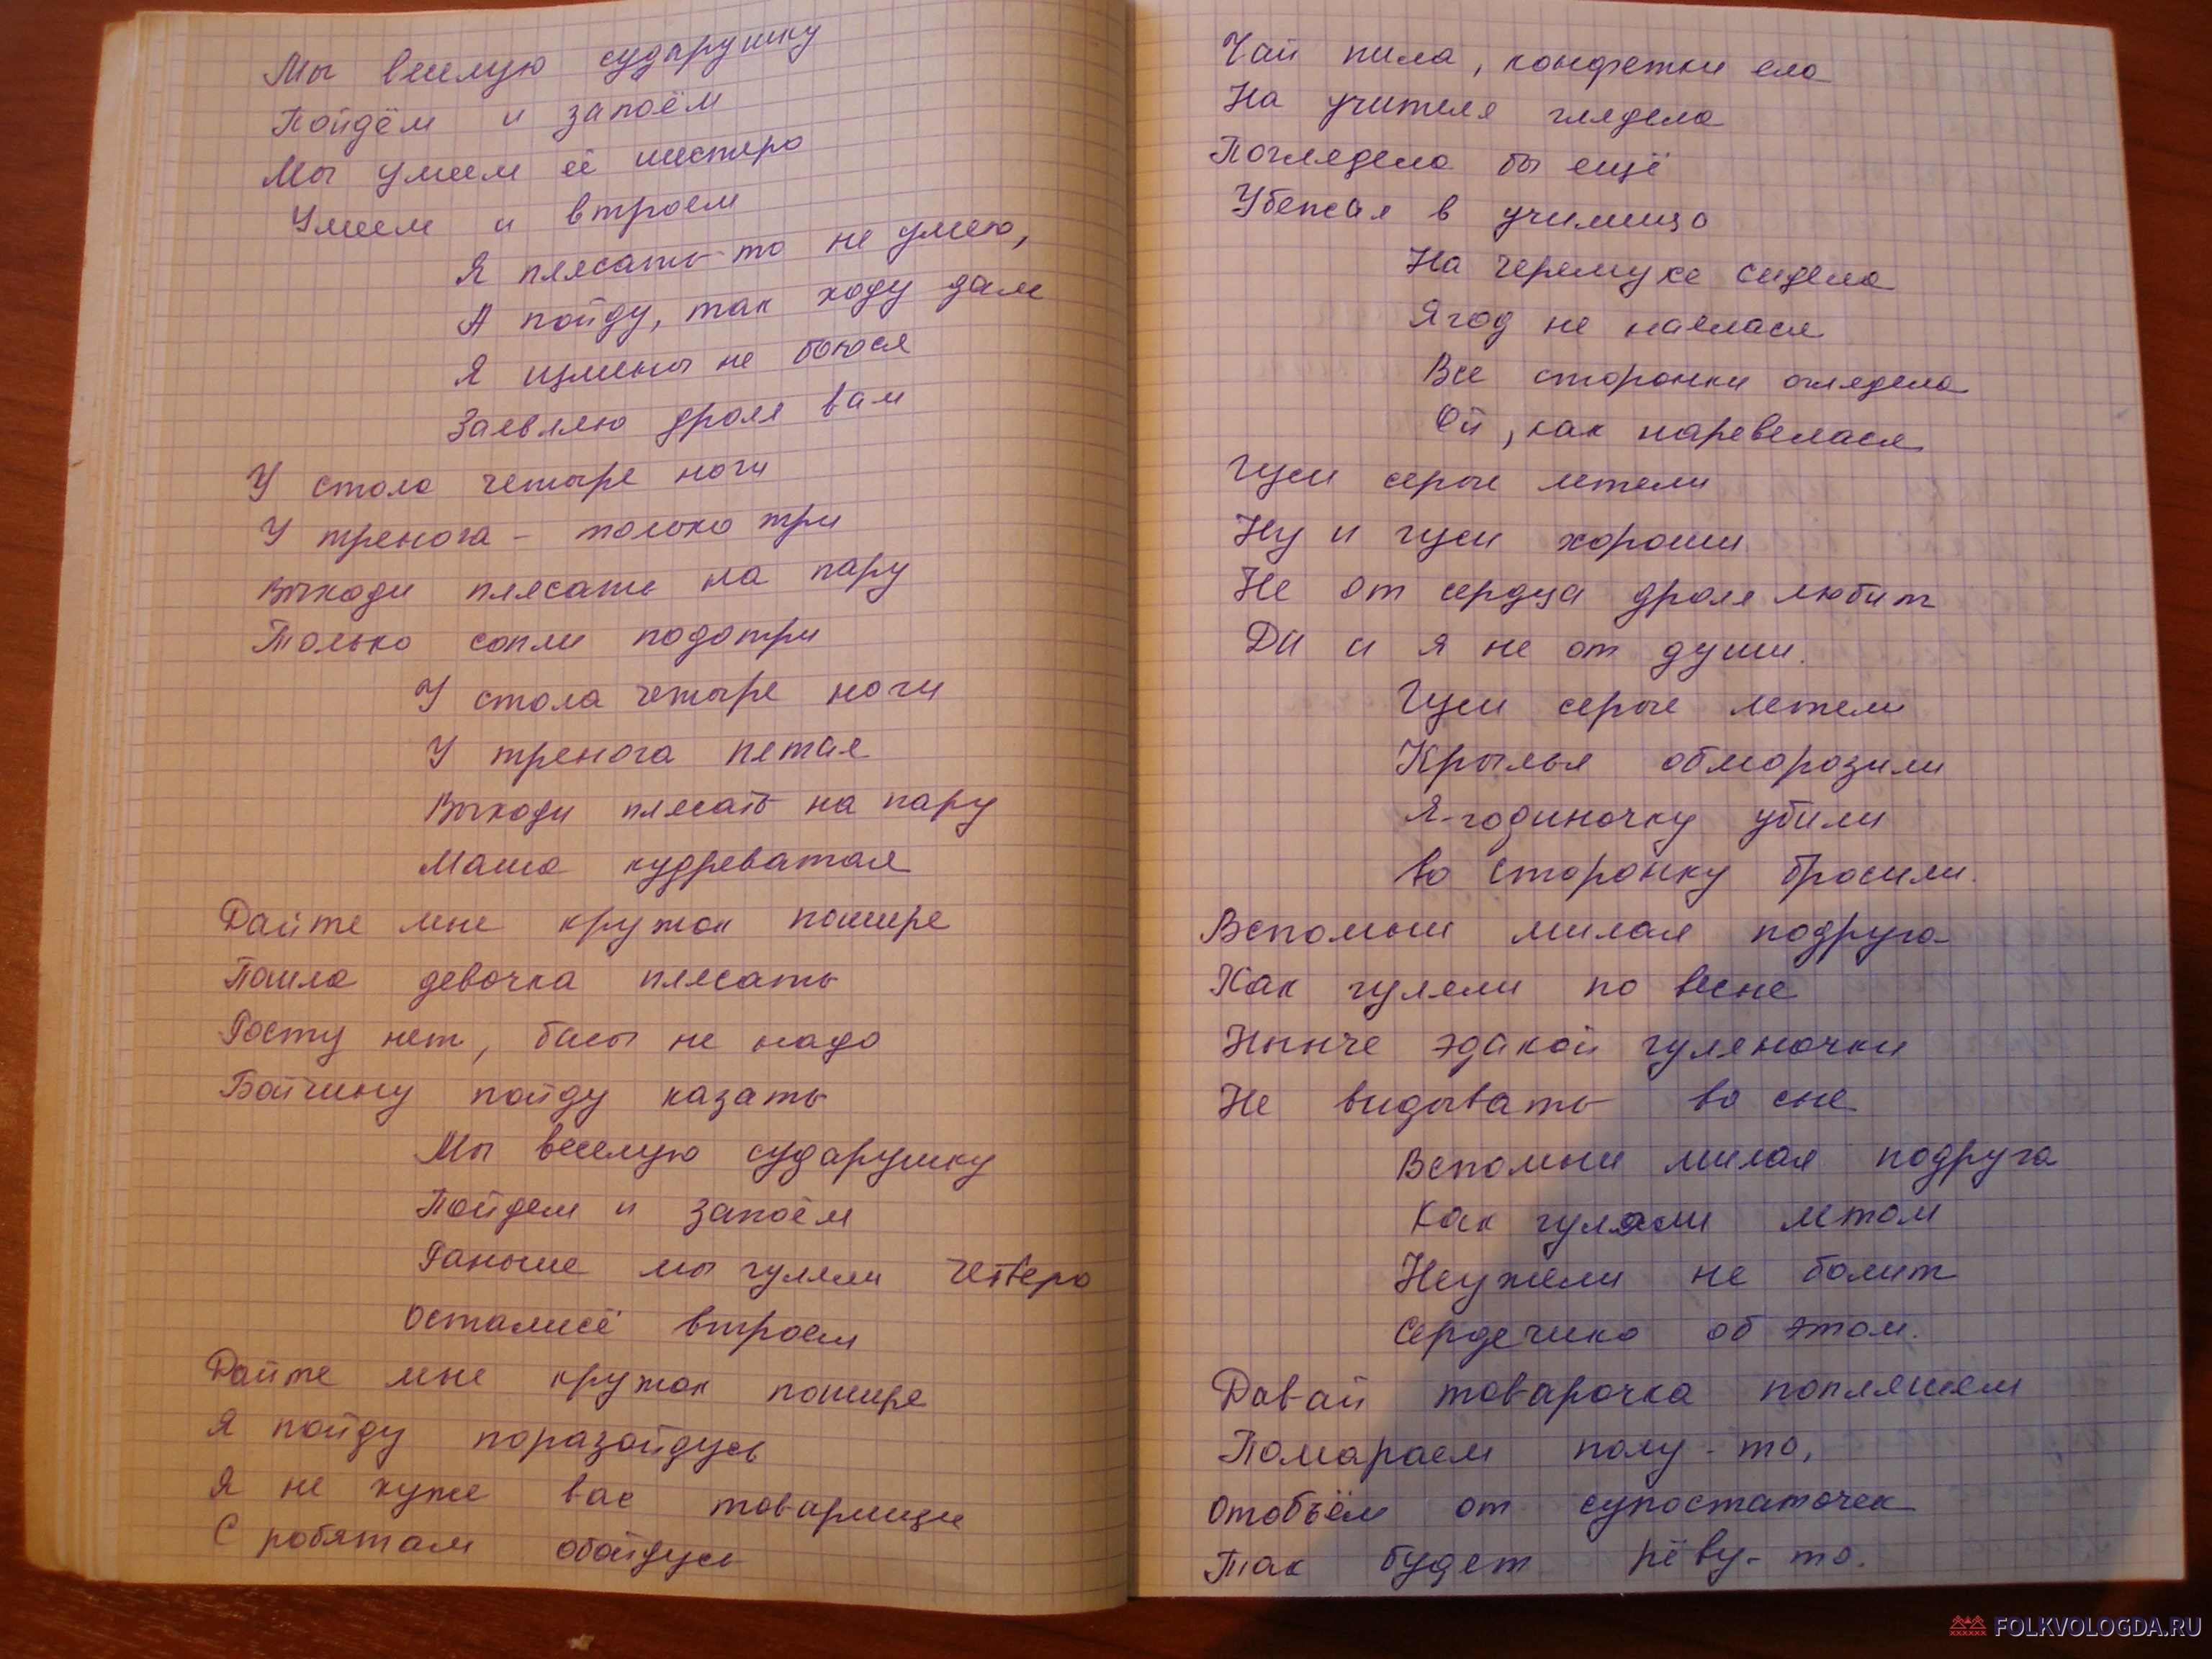 Мы веселую сударушку
Пойдём и запоём
Мы умеем её шестеро
Умеем и втроем
Я плясать-то не умею,
А пойду, так ходу дам
Я измены не боюся
Заявляю дроля вам
У стола четыре ноги
У тренога - только три
Выходи плясать на пару
Только сопли подотри
У стола четыре ноги
У тренога пятая
Выходи плясать на пару
Маша кудреватая
Дайте мне кружок пошире
Пошла девочка плясать
Росту нет, басы не надо
Бойчину пойду казать
Мы веселую сударушку
Пойдем и запоём
Раньше мы гуляли четверо
Осталисё втроем
Дайте мне кружок пошире
Я пойду поразойдусь
Я не хуже вас товарищи
С робятам обойдусь
Чай пила, конфетки ела
На учителя глядела
Поглядела бы ещё
Убежал в училищо
На черемухе сидела
Ягод не наелася
Все сторонки оглядела
Ой, как наревелася
Гуси серые летели
Ну и гуси хороши
Не от сердца дроля любит
Да и я не от души.
Гуси серые летели
Крылья обморозили
Я-годиночку убили
Во сторонку бросили.
Вспомни милая подруга
Как гуляли по весне
Нынче эдакой гуляночки
Не видывать во сне
Вспомни милая подруга
Как гуляли летом
Неужели не болит
Сердечико об этом.
Давай товарочка попляшем
Помараем полу-то,
Отобъём от супостаточек
Так будет рёву-то.
FOLKVOLOGDA.RU